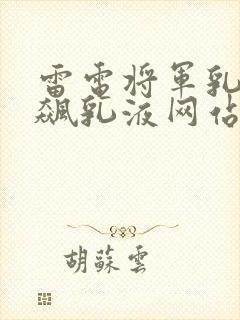 雷電将軍乳
飆乳液网佔
胡蘇雲